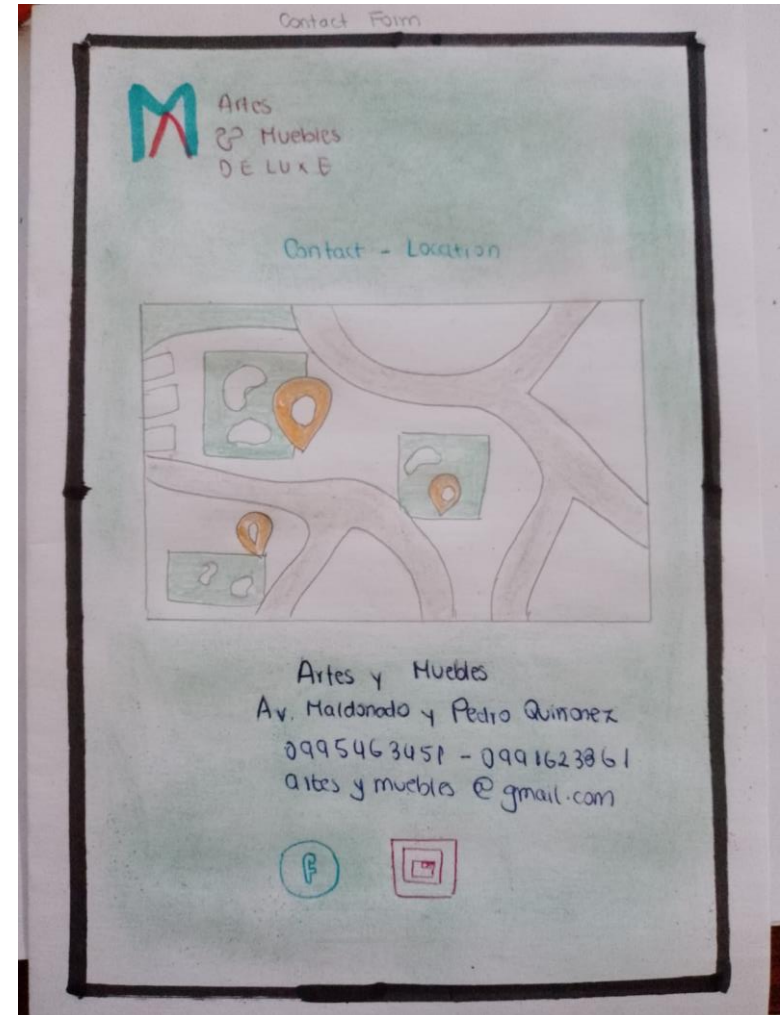 Contact Form
MA
Artes
& Muebles
DE LUXE
Contact - Location
Artes y Muebles
Av. Maldonado y Pedro Quinonez
0995463451 - 0991623861
artes y muebles @ gmail.com
f